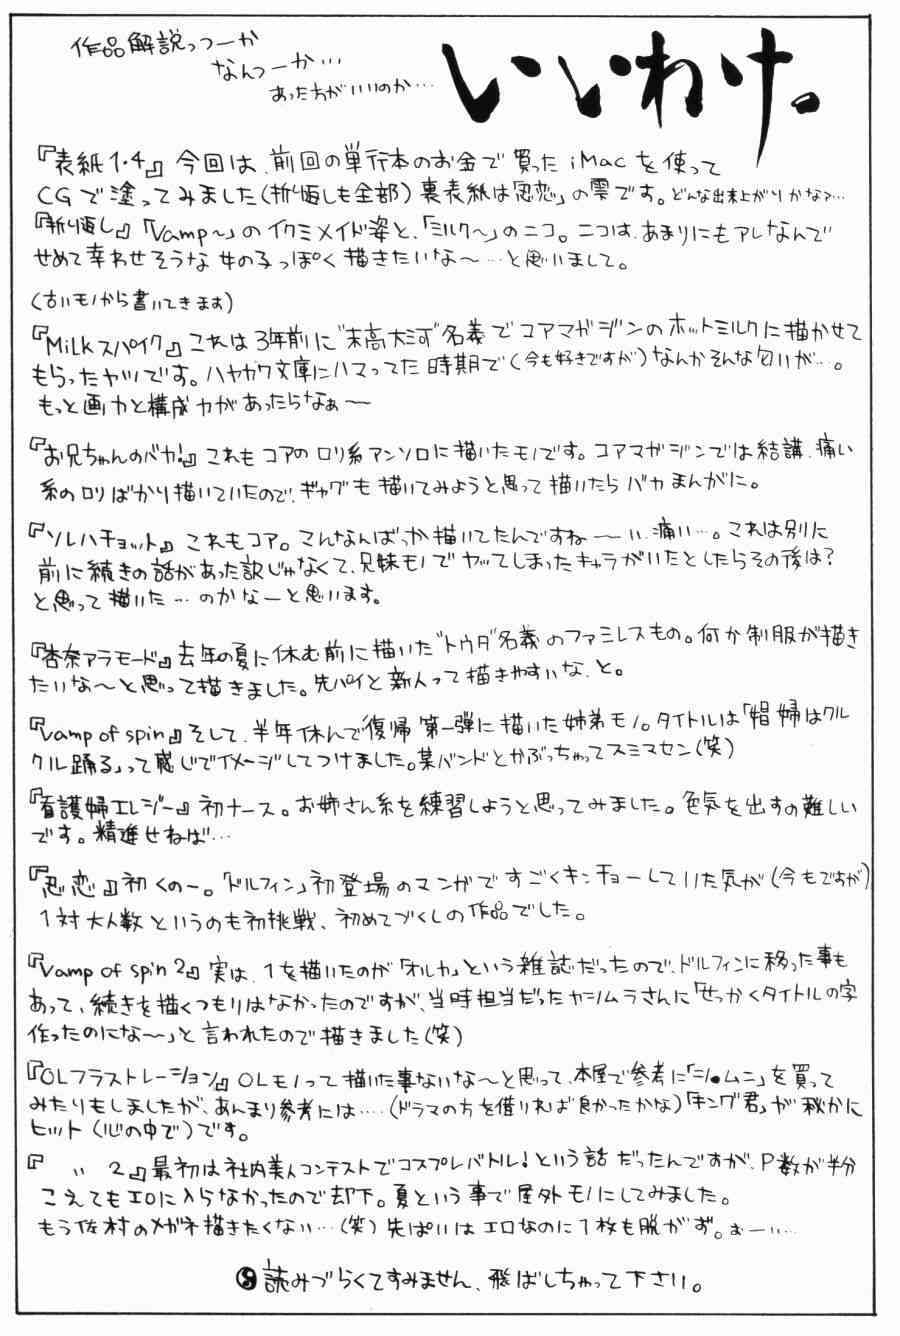 作品解説っつーか
なんつーか…
あった方がいいのか…
いいわけ。
『表紙1・4』今回は、前回の単行本のお金で買ったiMacを使って
CGで塗ってみました(折り返しも全部)裏表紙は「忍恋」の雫です。どんな出来上がりかな?…
『折り返し』「Vamp〜」のイクミメイド姿と、「ミルク〜」のニコ。ニコは、あまりにもアレなんで
せめて幸わせそうな女の子っぽく描きたいな〜…と思いまして。
(古いモノから書いてきます)
『Milkスパイク』これは3年前に"末高大河"名義でコアマガジンのホットミルクに描かせて
もらったヤツです。ハヤカワ文庫にハマってた時期で(今も好きですが)なんかそんな匂いが…。
もっと画力と構成力があったらなぁ〜
『お兄ちゃんのバカ!』これもコアのロリ系アンソロに描いたモノです。コアマガジンでは結講、痛い
系のロリばかり描いていたので、ギャグも描いてみようと思って描いたらバカまんがに。
『ソレハチョット』これもコア。こんなんばっか描いてたんですね〜い、痛い…。これは別に
前に続きの話があった訳じゃなくて、兄妹モノでヤッてしまったキャラがいたとしたらその後は?
と思って描いた…のかなーと思います。
『杏奈アラモード』去年の夏に休む前に描いた"トウタ"名義のファミレスもの。何か制服が描き
たいな〜と思って描きました。先パイと新人って描きやすいな、と。
『Vamp of spin』そして、半年休んで復帰第一弾に描いた姉弟モノ。タイトルは「娼婦はクル
クル踊る」って感じでイメージしてつけました。某バンドとかぶっちゃってスミマセン(笑)
『看護婦エレジー』初ナース。お姉さん系を練習しようと思ってみました。色気を出すの難しい
です。精進せねば…
『忍恋』初くのー。「ドルフィン」初登場のマンガですごくキンチョーしていた気が(今もですが)
1対大人数というのも初挑戦、初めてづくしの作品でした。
『Vamp of spin 2』実は、1を描いたのが「オルカ」という雑誌だったので、ドルフィンに移った事も
あって、続きを描くつもりはなかったのですが、当時担当だったヤシムラさんに「せっかくタイトルの字
作ったのにな〜」と言われたので描きました(笑)
『OLフラストレーション』OLモノって描いた事ないな〜と思って、本屋で参考に「シ●ムニ」を買って
みたりもしましたが、あんまり参考には……(ドラマの方を借りれば良かったかな)「キング君」が秘かに
ヒット(心の中で)です。
『 〃 2』最初は社内美人コンテストでコスプレバトル!という話だったんですが、P数が半分
こえてもエロに入らなかったので却下。夏という事で屋外モノにしてみました。
もう佐村のメガネ描きたくない…(笑)先ぱいはエロなのに1枚も脱がず。おー……
読みづらくてすみません、飛ばしちゃって下さい。